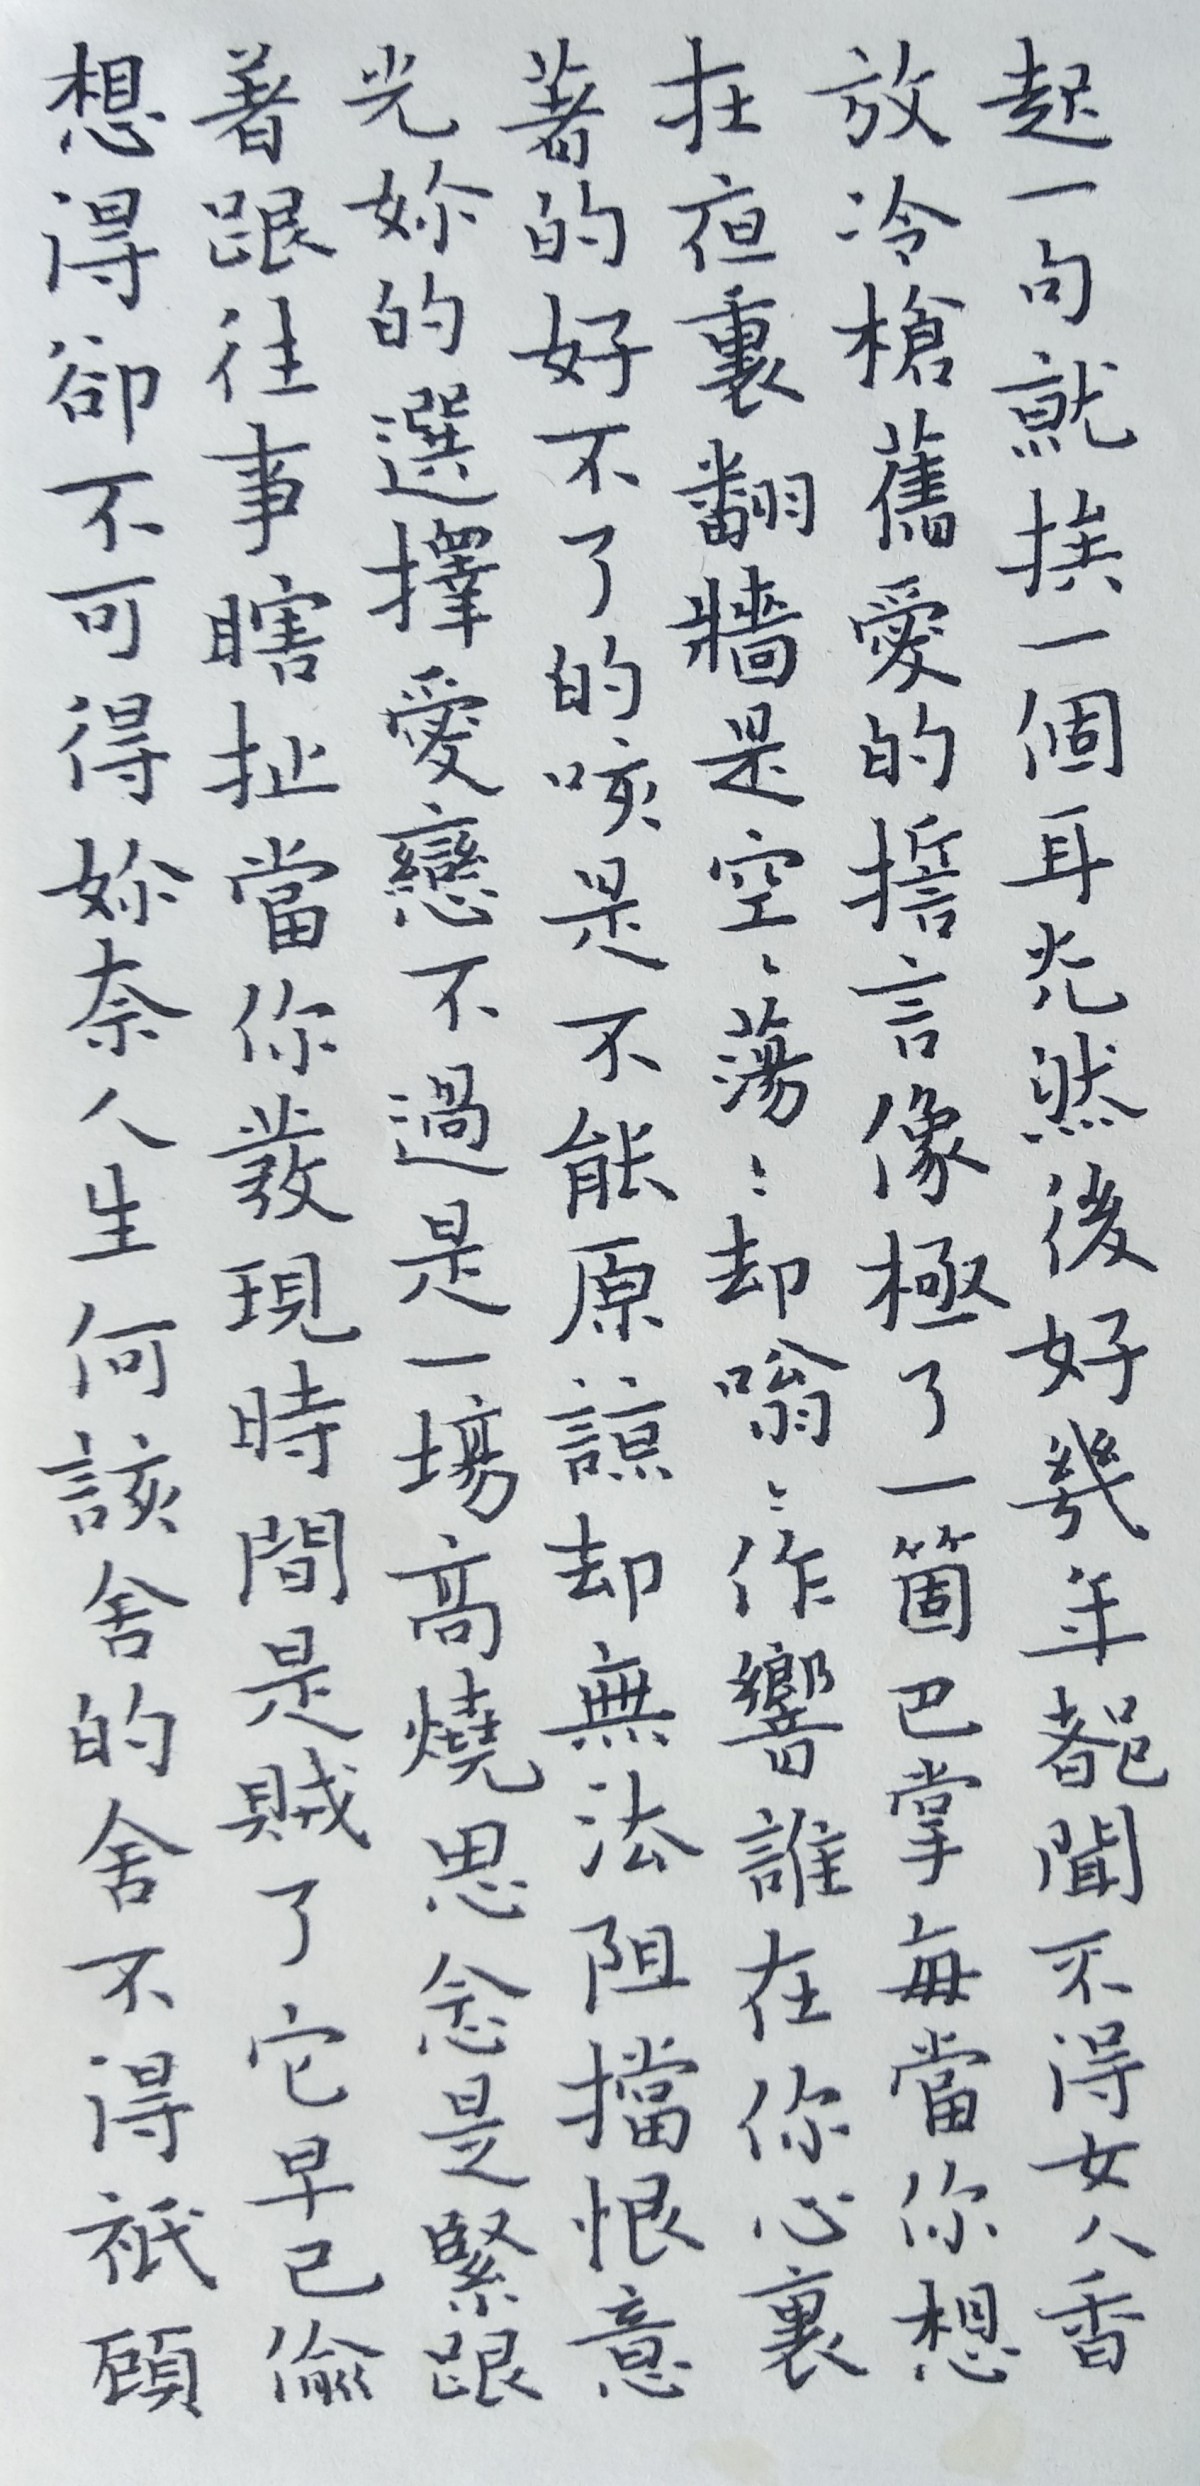 起一句就挨一個耳光然後好幾年都聞不得女人香
放冷槍舊愛的誓言像極了一箇巴掌每當你想
在夜裏翻牆是空:蕩:却嗡:作響誰在你心裏
著的好不了的咳是不能原諒却無法阻擋恨意
光妳的選擇愛戀不過是一場高燒思念是緊跟
著跟往事瞎扯當你發現時間是賊了它早已偷
想得卻不可得妳奈人生何該舍的舍不得祇顧